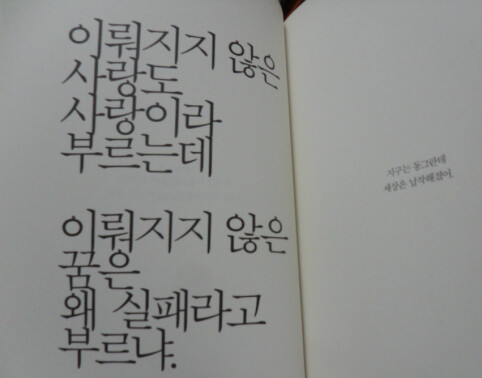 이뤄지지 않은
사랑도
사랑이라
부르는데
이뤄지지 않은
꿈은
왜 실패라고
부르냐.
지구는 동그란데
세상은 납작해졌어.